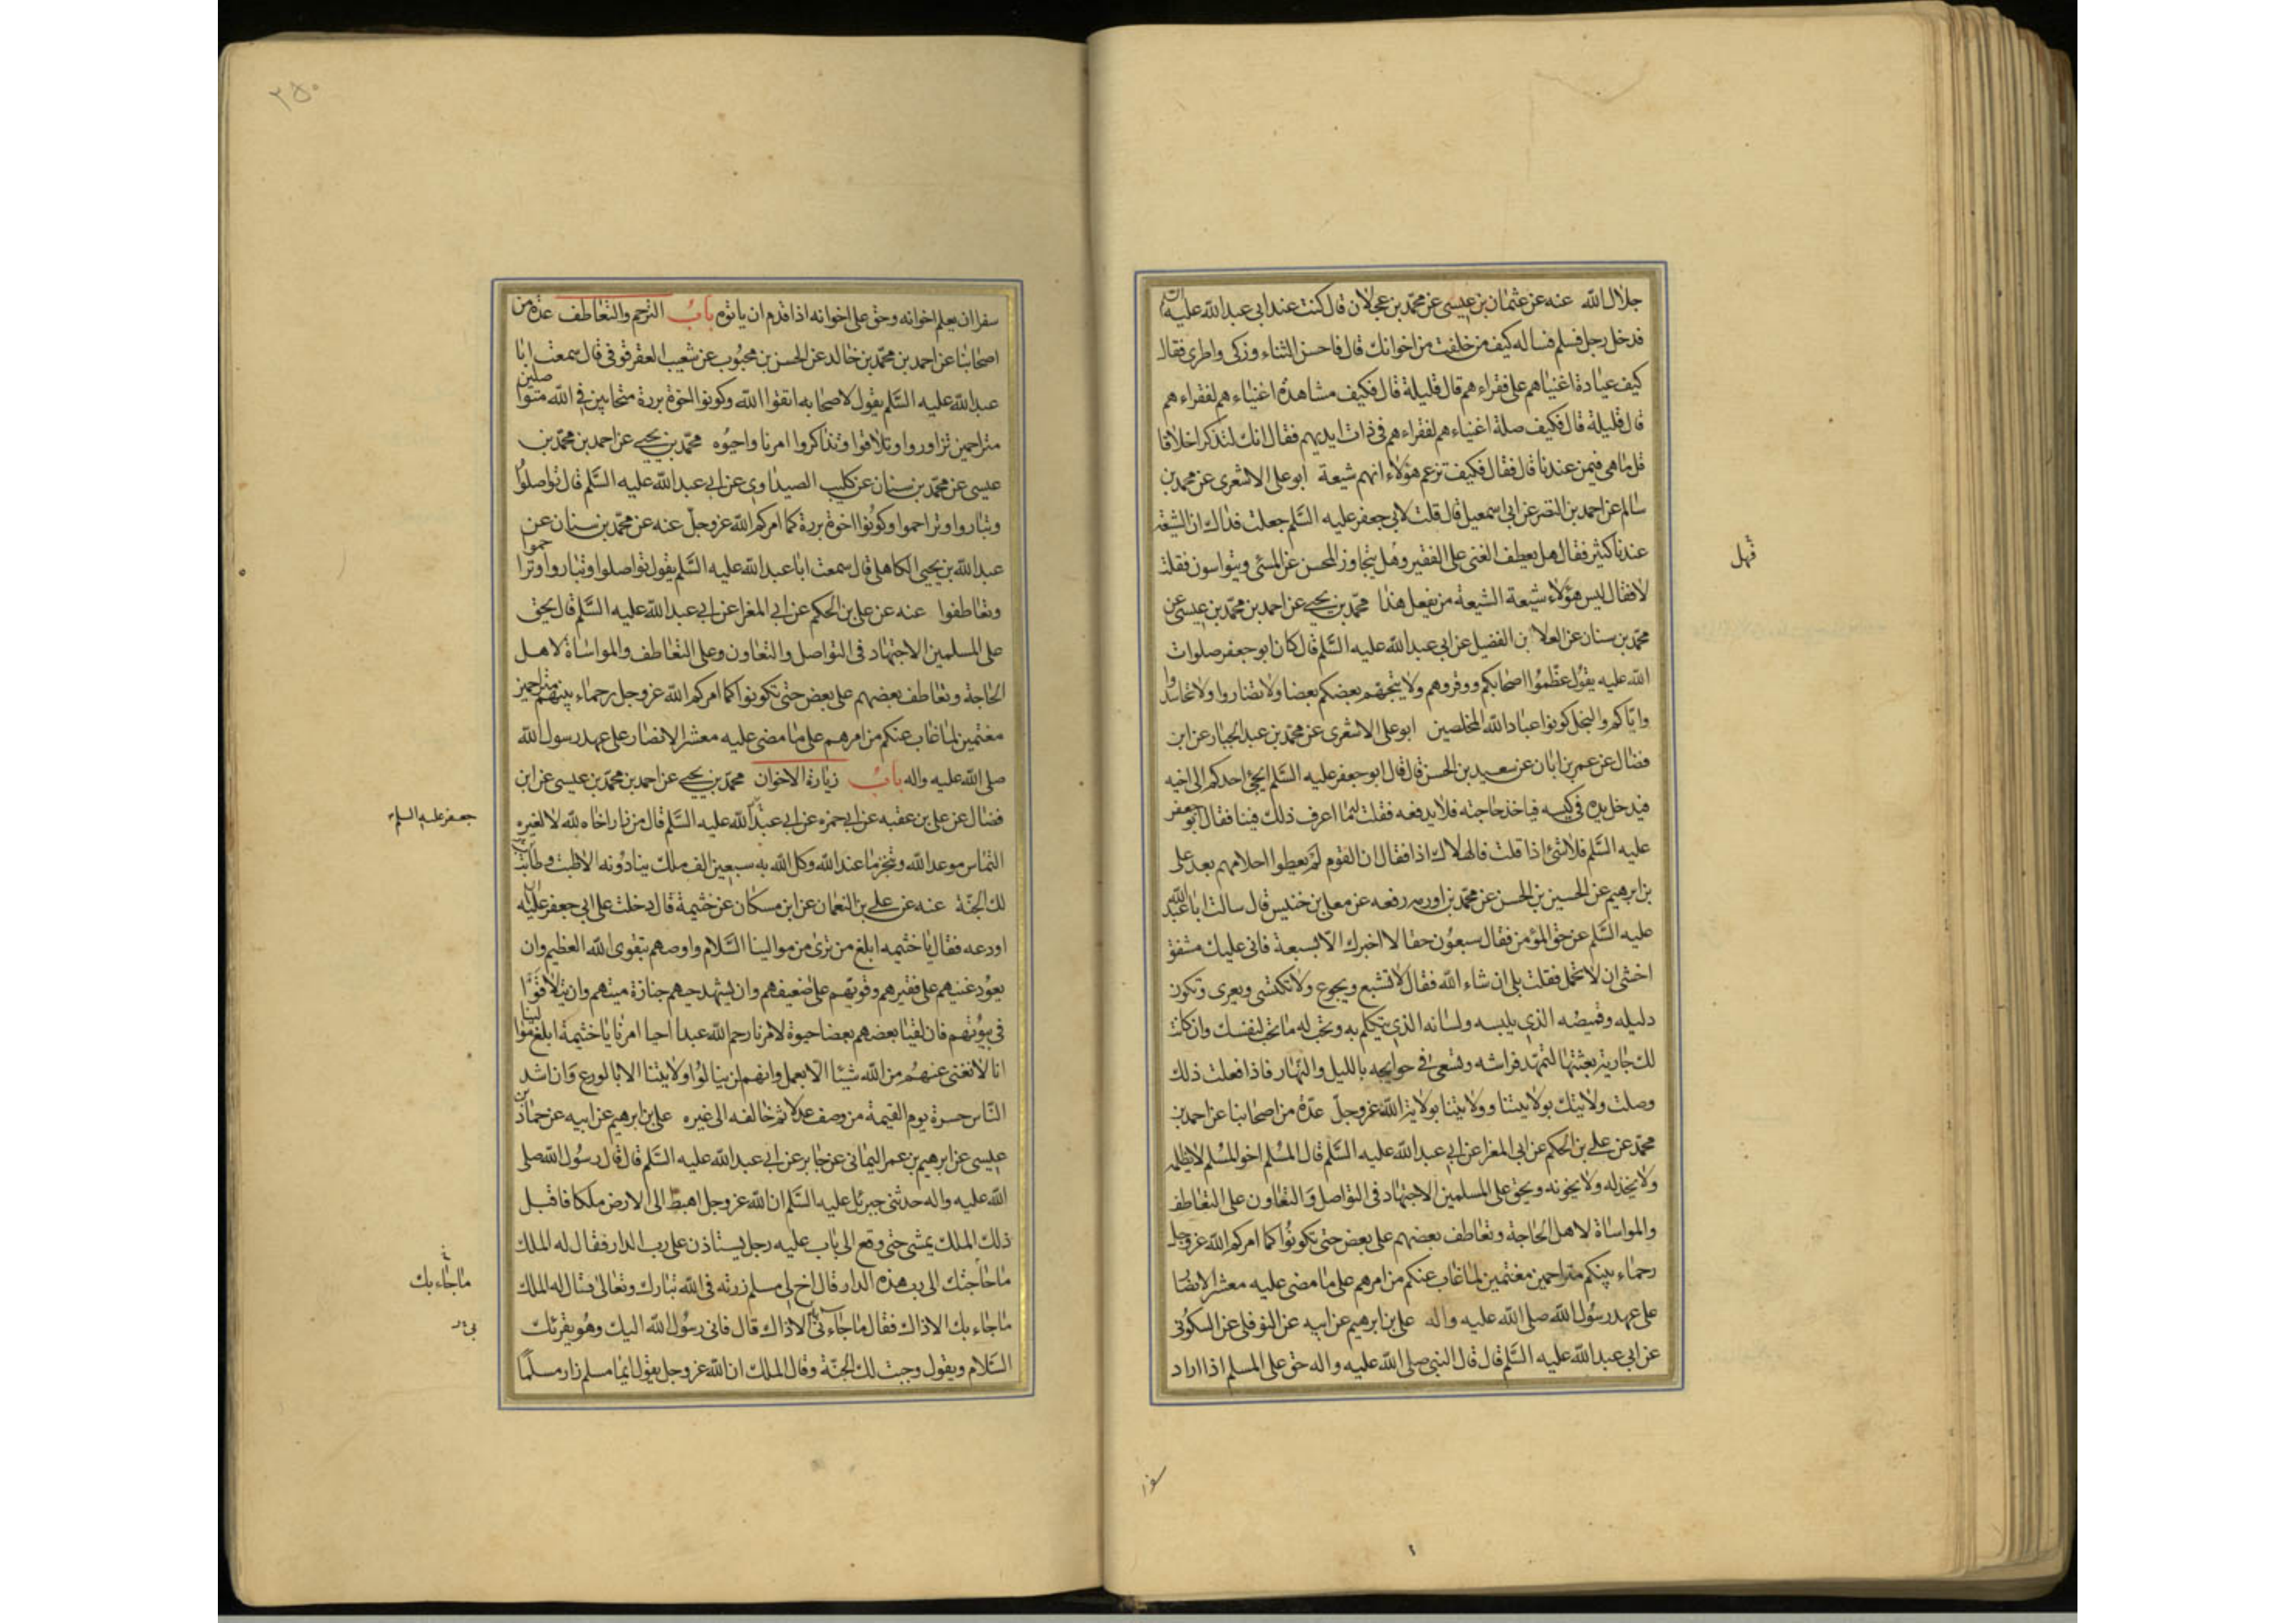 جلال الله عنه عن عثمان بن عيسى عن محمد بن عجلان قال كنت عند ابى عبد الله عليه
فدخل رجل فسلم فساله كيف من خلفت من اخوانك قال فاحسن الثناء وزكى واطرى فقال
كيف عيادة اغنياهم على فقراءهم قال قليلة قال فكيف مشاهدة اغنياءهم لفقراءهم
قال قليلة قال فكيف صلة اغنياءهم لفقراءهم فى ذات ايديهم فقال انك لتذكر اخلاقا
قل ما هى فيمن عندنا قال فقال فكيف تزعم هؤلاء انهم شيعة ابو على الاشعرى عن محمد بن
سالم عن احمد بن النضر عن ابى اسمعيل قال قلت لابى جعفر عليه السلم جعلت فداك ان الشيعة
عندنا كثير فقال هل يعطف الغنى على الفقير وهل يتجاوز المحسن عن المسئ ويتواسون فقلت
فهل
لا فقال ليس هؤلاء شيعة الشيعة من يفعل هذا محمد بن يحيى عن احمد بن محمد بن عيسى عن
محمد بن سنان عن العلا بن الفضيل عن ابى عبد الله عليه السلم قال كان ابو جعفر صلوات
الله عليه يقول عظموا اصحابكم ووقروهم ولا يتجهم بعضكم بعضا ولا تضاروا ولا تحاسدوا
واياكم والبخل كونوا عباد الله المخلصين ابو على الاشعرى عن محمد بن عبد الجبار عن ابن
فضال عن عمر بن ابان عن سعيد بن الحسن قال قال ابو جعفر عليه السلم ايجئ احدكم الى اخيه
فيدخل يده فى كيسه فياخذ حاجته فلا يدفعه فقلت ما اعرف ذلك فينا فقال ابو جعفر
عليه السلم فلا شئ اذا قلت فالهلاك اذا فقال ان القوم لم يعطوا احلامهم بعد على
بن ابرهيم عن الحسين بن الحسن عن محمد بن اورمه رفعه عن معلى بن خنيس قال سالت ابا عبد الله
عليه السلم عن حق المؤمن فقال سبعون حقا لا اخبرك الا بسبعة فانى عليك مشفق
اخشى ان لا تحمل فقلت بلى ان شاء الله فقال لا تشبع ويجوع ولا تكتسى ويعرى وتكون
دليله وقميصه الذى يلبسه ولسانه الذى يتكلم به وتحب له ما تحب لنفسك وان كانت
لك جارية بعثتها لتمهد فراشه وتسعى فى حوايجه بالليل والنهار فاذا فعلت ذلك
وصلت ولايتك بولايتنا وولايتنا بولاية الله عز وجل عدة من اصحابنا عن احمد بن
محمد عن على بن الحكم عن ابى المغرا عن ابى عبد الله عليه السلم قال المسلم اخو المسلم لا يظلمه
ولا يخذله ولا يخونه ويحق على المسلمين الاجتهاد فى التواصل والتعاون على التعاطف
والمواساة لاهل الحاجة وتعاطف بعضهم على بعض حتى تكونوا كما امركم الله عز وجل
رحماء بينكم متراحمين مغتمين لما غاب عنكم من امرهم على ما مضى عليه معشر الانصا
على عهد رسول الله صلى الله عليه واله على بن ابرهيم عن ابيه عن النوفلى عن السكونى
عن ابى عبد الله عليه السلم قال قال النبى صلى الله عليه واله حق على المسلم اذا اراد
سفرا
٢٥٠
سفرا ان يعلم اخوانه وحق على اخوانه اذا قدم ان ياتوه باب التراحم والتعاطف عدة من
اصحابنا عن احمد بن محمد بن خالد عن الحسن بن محبوب عن شعيب العقرقوفى قال سمعت ابا
عبد الله عليه السلم يقول لاصحابه اتقوا الله وكونوا اخوة بررة متحابين فى الله متواصلين
متراحمين تزاوروا وتلاقوا وتذاكروا امرنا واحيوه محمد بن يحيى عن احمد بن محمد بن
عيسى عن محمد بن سنان عن كليب الصيداوى عن ابى عبد الله عليه السلم قال تواصلوا
وتباروا وتراحموا وكونوا اخوة بررة كما امركم الله عز وجل عنه عن محمد بن سنان عن
عبد الله بن يحيى الكاهلى قال سمعت ابا عبد الله عليه السلم يقول تواصلوا وتباروا وتراحموا
وتعاطفوا عنه عن على بن الحكم عن ابى المغرا عن ابى عبد الله عليه السلم قال يحق
على المسلمين الاجتهاد فى التواصل والتعاون وعلى التعاطف والمواساة لاهل
الحاجة وتعاطف بعضهم على بعض حتى تكونوا كما امركم الله عز وجل رحماء بينهم متراحمين
مغتمين لما غاب عنكم من امرهم على ما مضى عليه معشر الانصار على عهد رسول الله
صلى الله عليه واله باب زيارة الاخوان محمد بن يحيى عن احمد بن محمد بن عيسى عن ابن
فضال عن على بن عقبه عن ابى حمزه عن ابى عبد الله عليه السلم قال من زار اخاه لله لا لغيره
جعفر عليه السلم
التماس موعد الله وتنجز ما عند الله وكل الله به سبعين الف ملك ينادونه الا طبت وطابت
لك الجنة عنه عن على بن النعمان عن ابن مسكان عن خثيمة قال دخلت على ابى جعفر عليه
اودعه فقال يا خثيمه ابلغ من ترى من موالينا السلام واوصهم بتقوى الله العظيم وان
يعود غنيهم على فقيرهم وقويهم على ضعيفهم وان يشهد حيهم جنازة ميتهم وان يتلاقوا
فى بيوتهم فان لقيا بعضهم بعضا حيوة لامرنا رحم الله عبدا احيا امرنا يا خثيمة ابلغ موالينا
انا لا نغنى عنهم من الله شيئا الا بعمل وانهم لن ينالوا ولايتنا الا بالورع وان اشد
الناس حسرة يوم القيمة من وصف عدلا ثم خالفه الى غيره على بن ابرهيم عن ابيه عن حماد بن
عيسى عن ابرهيم بن عمر اليمانى عن جابر عن ابى عبد الله عليه السلم قال قال رسول الله صلى
الله عليه واله حدثنى جبرئل عليه السلم ان الله عز وجل اهبط الى الارض ملكا فاقبل
ذلك الملك يمشى حتى وقع الى باب عليه رجل يستاذن على رب الدار فقال له الملك
ما حاجتك الى رب هذه الدار قال اخ لى مسلم زرته فى الله تبارك وتعالى فقال له الملك
ما جاء بك
ما جاء بك الا ذاك فقال ما جاء نى الا ذاك قال فانى رسول الله اليك وهو يقرئك
السلام ويقول وجبت لك الجنة وقال الملك ان الله عز وجل يقول ايما مسلم زار مسلما